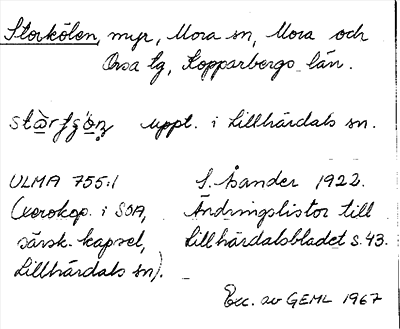 Storkölen, myr, Mora sn, Mora och
Orsa tg, Kopparbergs län.
uppt. i Lillhärdals sn.
ULMA 755:1 S. Åsander 1922.
(xerokop. i SOA, Ändringslistor till
särsk. kapsel, Lillhärdalsbladet s. 43.
Lillhärdals sn).
Exc. av GEML 1967